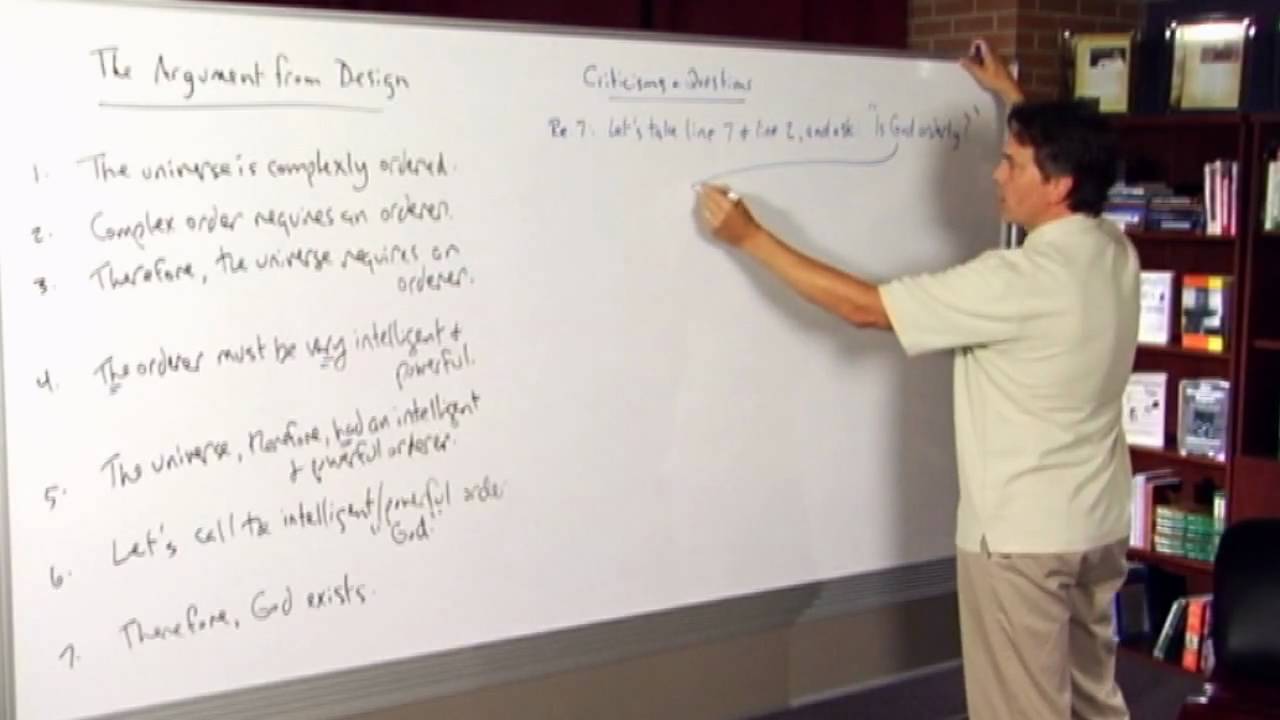 The Argument from Design
1. The universe is complexly ordered.
2. Complex order requires an orderer.
3. Therefore, the universe requires an
orderer.
4. The orderer must be very intelligent +
powerful.
5. The universe, therefore, had an intelligent
+ powerful orderer.
6. Let's call the intelligent/powerful orde
"God"
7. Therefore, God exists.
Criticisms + Questions
Re 7: Let's take line 7 + line 2, and ask "Is God orderly?"